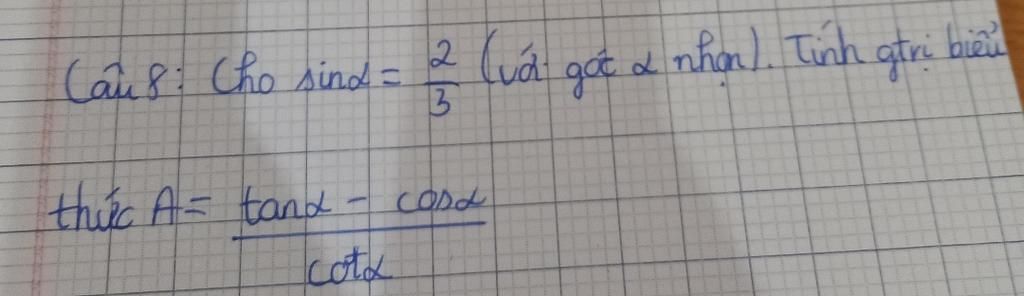 Câu 8: Cho sinα = 2/3 (với góc α nhọn). Tính gtrị biểu
thức A = (tanα - cosα)/cotα